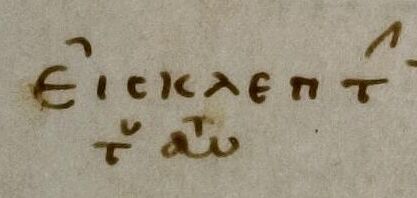 Εἰσκλεπτ^
τͧ αυ^τ